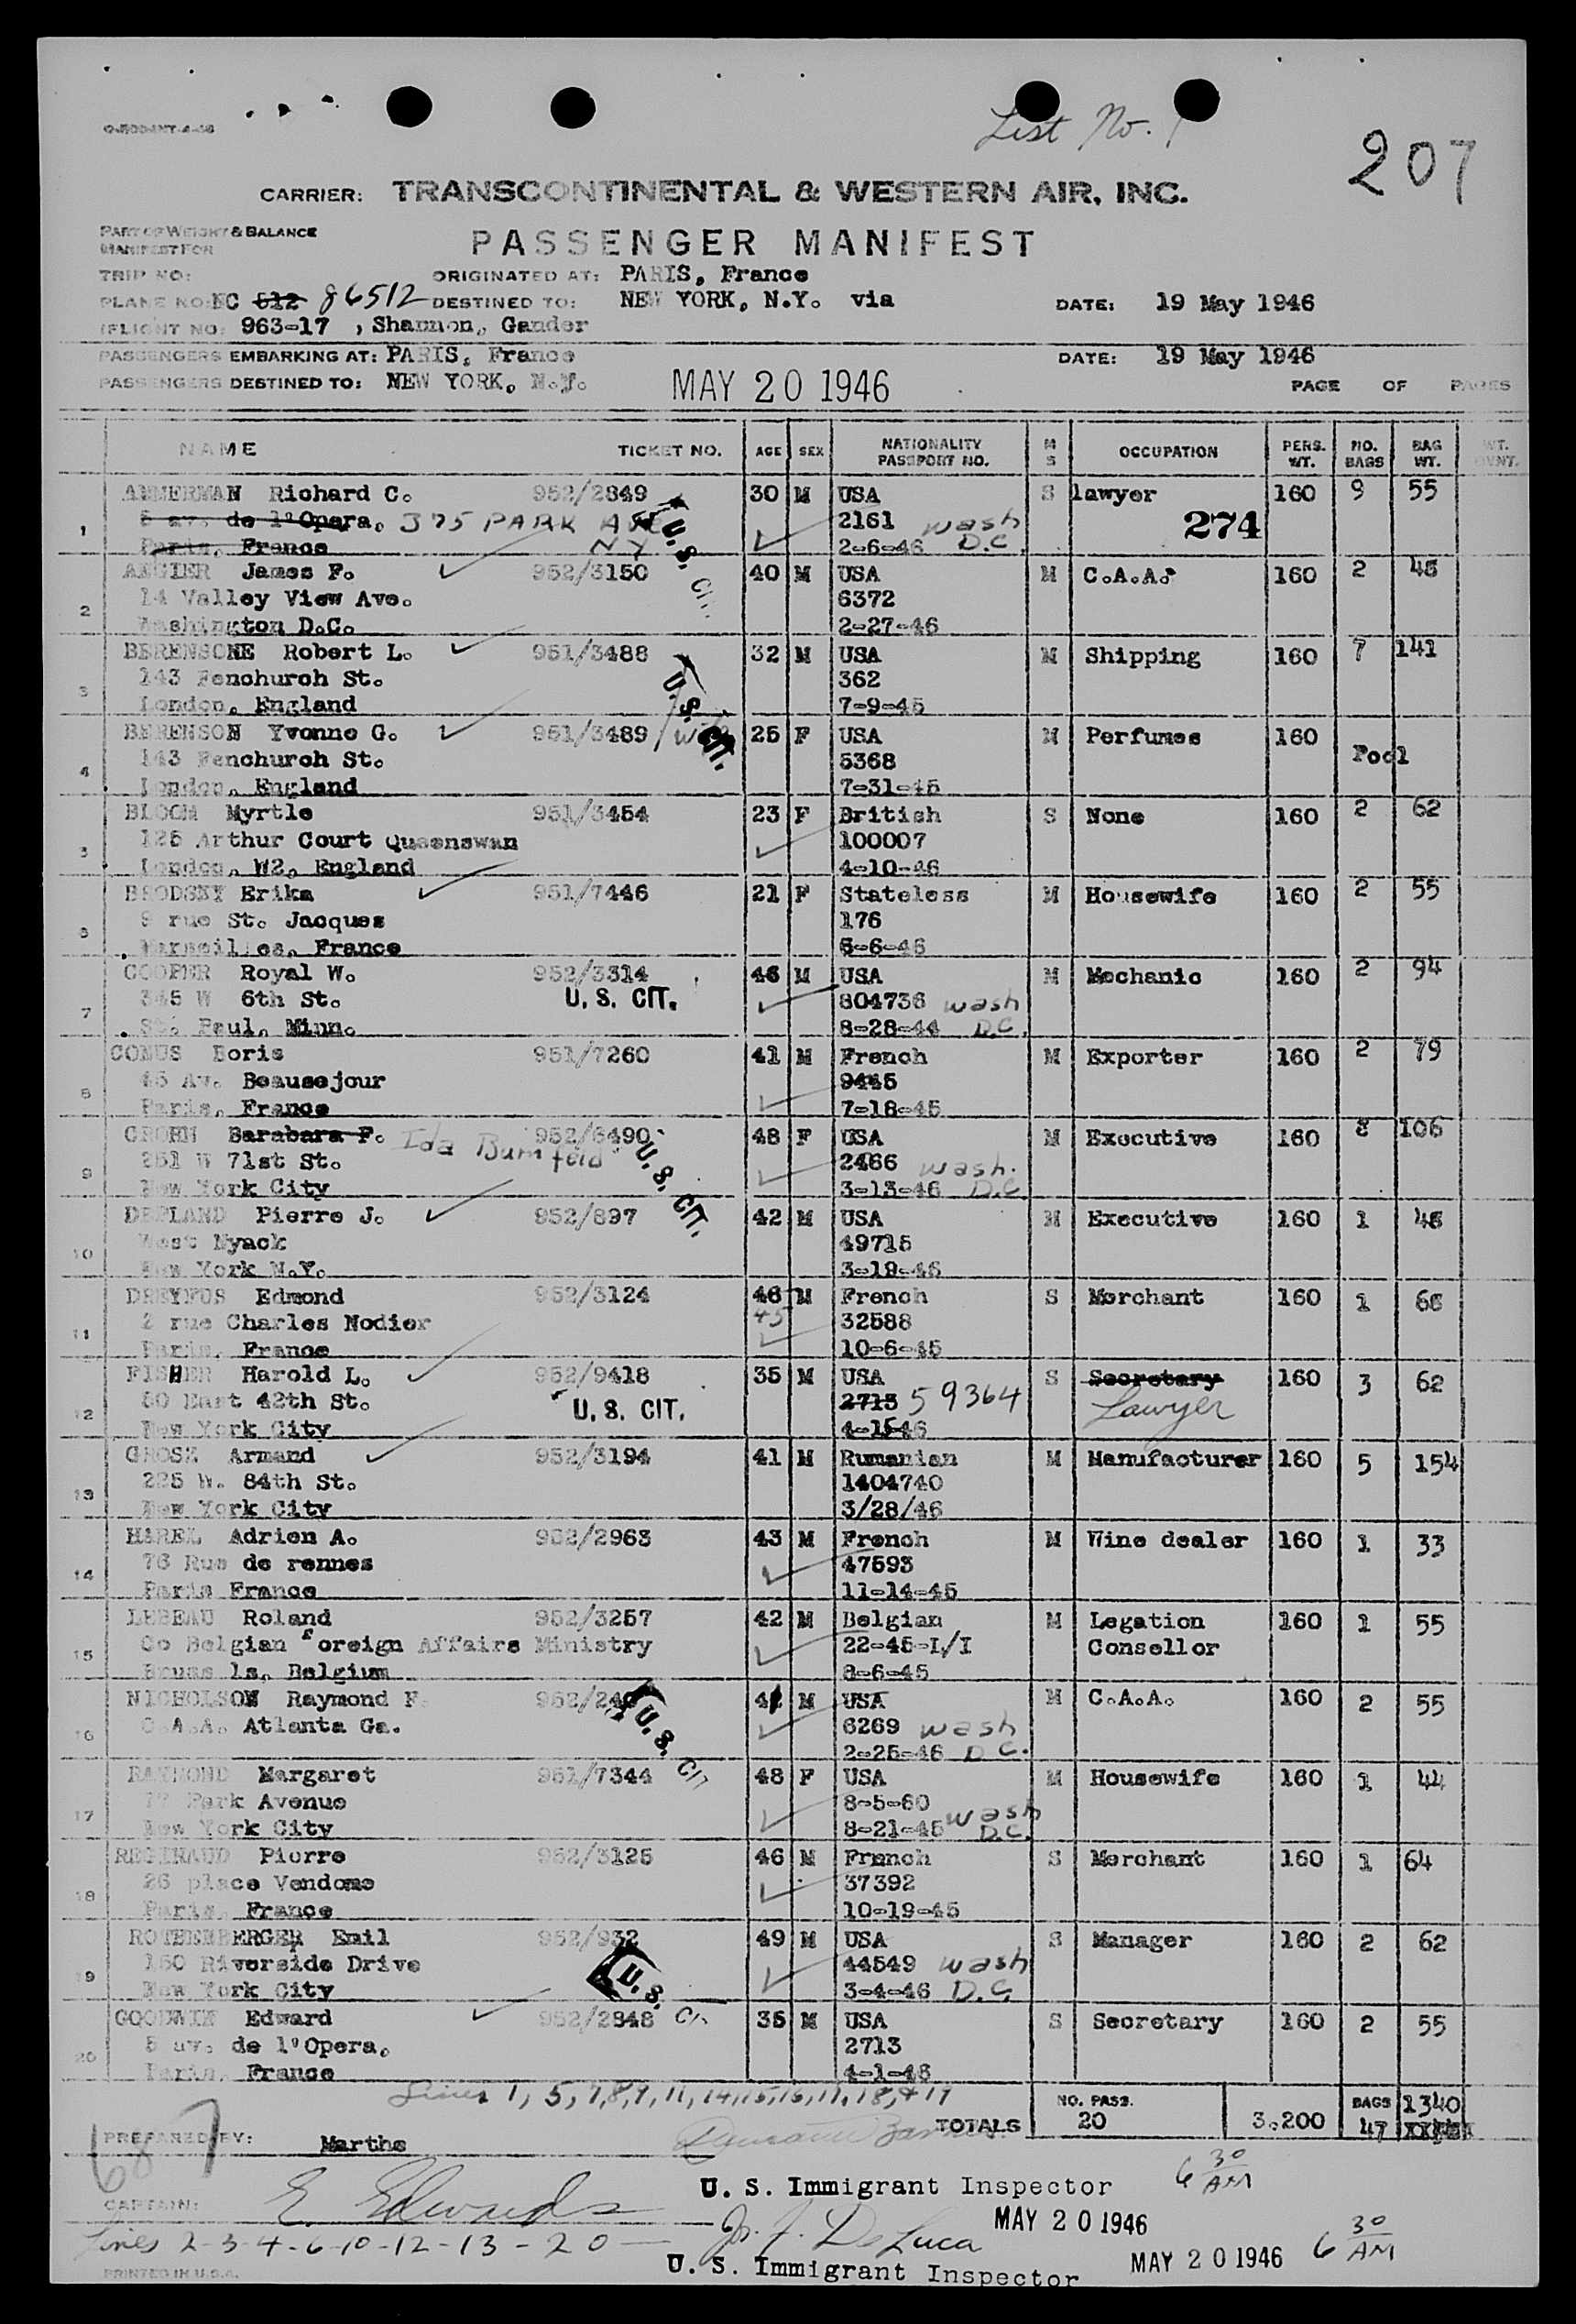 List No. 1
207
CARRIER: TRANSCONTINENTAL & WESTERN AIR, INC.
PART OF WEIGHT & BALANCE
MANIFEST FOR
PASSENGER MANIFEST
TRIP NO: ORIGINATED AT: PARIS, France
PLANE NO: NC 512 86512 DESTINED TO: NEW YORK, N.Y. via DATE: 19 May 1946
(FLIGHT NO: 963-17 , Shannon, Gander
PASSENGERS EMBARKING AT: PARIS, France DATE: 19 May 1946
PASSENGERS DESTINED TO: NEW YORK, N.Y. MAY 20 1946 PAGE OF PAGES
NAME TICKET NO. AGE SEX NATIONALITY PASSPORT NO. M S OCCUPATION PERS. WT. NO. BAGS BAG WT. WT.
AMMERMAN Richard C. 952/2849 30 M USA S lawyer 160 9 55
1 5 av. de l'Opera. 375 PARK AVE U.S. CIT. 2161 wash 274
Paris, France NY 2-6-46 D.C.
ANGIER James F. 952/3150 40 M USA M C.A.A. 160 2 45
2 14 Valley View Ave. 6372
Washington D.C. 2-27-46
BERENSONE Robert L. 951/3488 32 M USA M Shipping 160 7 141
3 143 Fenchurch St. U.S. CIT. 362
London, England 7-9-45
BERENSON Yvonne G. 951/3489 25 F USA M Perfumes 160 Pool
4 143 Fenchurch St. 5368
London, England 7-31-45
BLOOM Myrtle 951/3454 23 F British S None 160 2 62
5 125 Arthur Court Queenswan 100007
London, W2, England 4-10-46
BRODSKY Erika 951/7446 21 F Stateless M Housewife 160 2 55
6 9 rue St. Jacques 176
Marseilles, France 5-6-46
COOPER Royal W. 952/3314 46 M USA M Mechanic 160 2 94
7 345 W 6th St. U. S. CIT. 804736 wash
St. Paul, Minn. 8-28-44 D.C.
COMUS Boris 951/7260 41 M French M Exporter 160 2 79
8 45 Av. Beausejour 9445
Paris, France 7-18-45
CROHN Barabara F. Ida 952/3490 48 F USA M Executive 160 8 106
9 251 W 71st St. U.S. CIT. 2466 wash.
New York City 3-13-46 D.C
DEPLAND Pierre J. 952/897 42 M USA M Executive 160 1 46
10 West Nyack 49715
New York N.Y. 3-19-46
DREYFUS Edmond 952/3124 46 M French S Merchant 160 1 66
11 2 rue Charles Nodier 45 32588
Paris, France 10-6-45
FISHER Harold L. 952/9418 35 M USA S Secretary 160 3 62
12 60 East 42th St. U. S. CIT. 2713 59364 Lawyer
New York City 4-1546
GROSZ Armand 952/3194 41 M Rumanian M Manufacturer 160 5 154
13 225 W. 84th St. 1404740
New York City 3/28/46
HAREL Adrien A. 952/2963 43 M French M Wine dealer 160 1 33
14 76 Rue de rennes 47593
Paris France 11-14-45
LEBEAU Roland 952/3257 42 M Belgian M Legation 160 1 55
15 Co Belgian foreign Affairs Ministry 22-45-I/I Consellor
Brussels, Belgium 8-6-45
NICHOLSON Raymond F. 952/ M USA M C.A.A. 160 2 55
16 C.A.A. Atlanta Ga. U.S. CIT 6269 wash
2-25-46 D C.
RAYMOND Margaret 951/7344 48 F USA M Housewife 160 1 44
17 Park Avenue 8-5-60 wash
New York City 8-21-45 D.C.
REGINAUD Pierre 952/3125 46 M French S Merchant 160 1 64
18 26 place Vendome 37392
Paris, France 10-19-45
ROTHENBERGER Emil 952/932 49 M USA S Manager 160 2 62
19 150 Riverside Drive U.S. CIT 44549 wash
New York City 3-4-46 D.C.
GOODWIN Edward 952/2848 35 M USA S Secretary 160 2 55
20 5 av. de l'Opera. 2713
Paris, France 4-1-46
Lines 1, 5, 7, 8, 9, 11, 14, 15, 16, 17, 18, & 19
TOTALS NO. PASS. 20 3.200 BAGS 47 1340
PREPARED BY: Marthe
U. S. Immigrant Inspector 6 30 AM
CAPTAIN: E. Edwards MAY 20 1946
Lines 2-3-4-6-10-12-13-20 Jr. J. DeLuca
U. S. Immigrant Inspector MAY 20 1946 6 30 AM
PRINTED IN U.S.A.